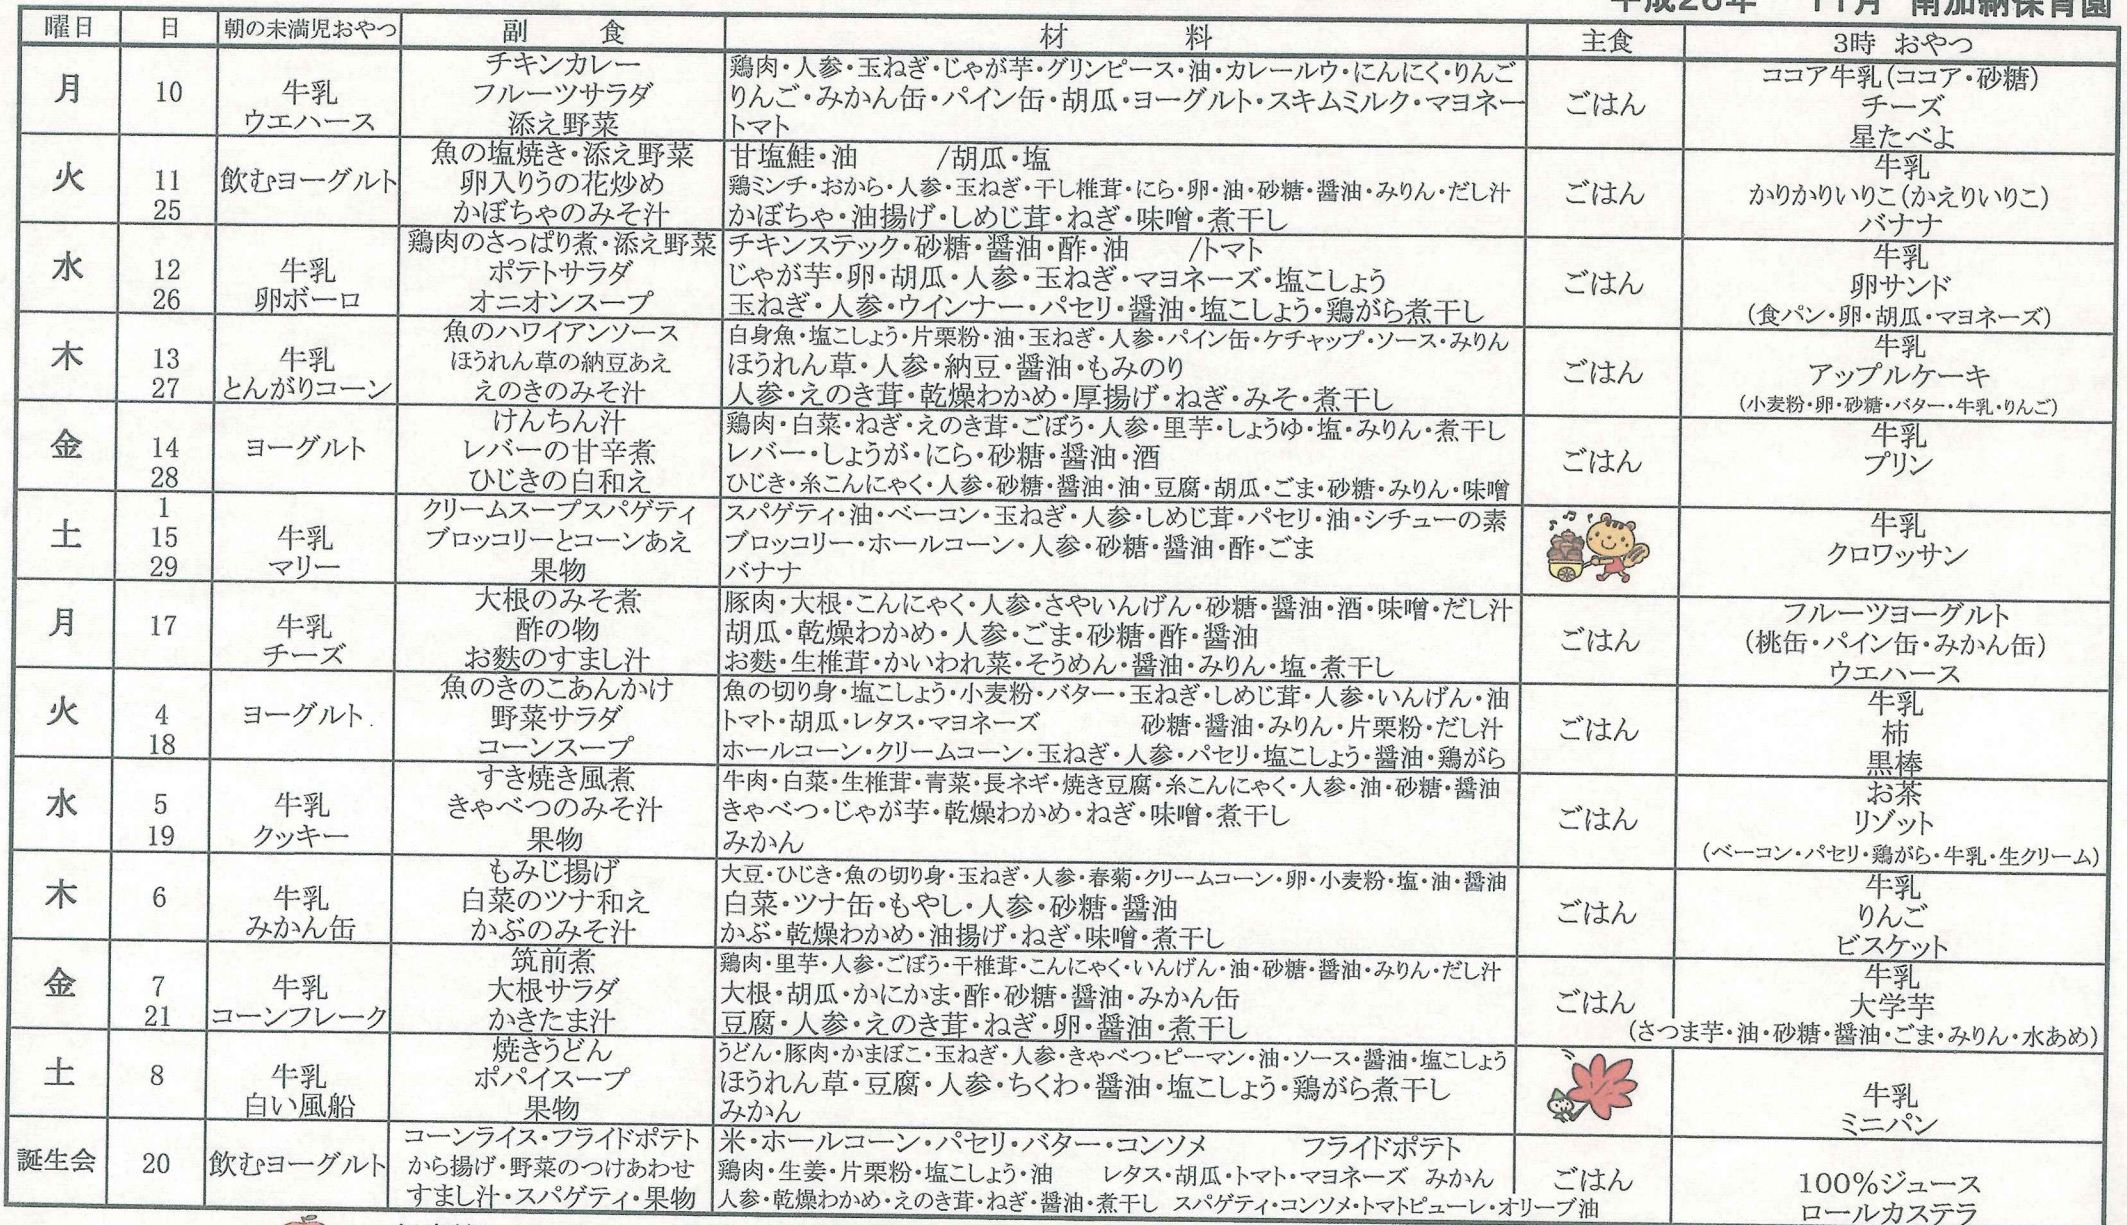 平成26年 11月 南加納保育園
曜日 日 朝の未満児おやつ 副 食 材 料 主食 3時 おやつ
月 10 牛乳 ウエハース
チキンカレー
フルーツサラダ
添え野菜
鶏肉・人参・玉ねぎ・じゃが芋・グリンピース・油・カレールウ・にんにく・りんご
りんご・みかん缶・パイン缶・胡瓜・ヨーグルト・スキムミルク・マヨネー
トマト
ごはん
ココア牛乳(ココア・砂糖)
チーズ
星たべよ
火 11 25 飲むヨーグルト
魚の塩焼き・添え野菜
卵入りうの花炒め
かぼちゃのみそ汁
甘塩鮭・油 /胡瓜・塩
鶏ミンチ・おから・人参・玉ねぎ・干し椎茸・にら・卵・油・砂糖・醤油・みりん・だし汁
かぼちゃ・油揚げ・しめじ茸・ねぎ・味噌・煮干し
ごはん
牛乳
かりかりいりこ(かえりいりこ)
バナナ
水 12 26 牛乳 卵ボーロ
鶏肉のさっぱり煮・添え野菜
ポテトサラダ
オニオンスープ
チキンステック・砂糖・醤油・酢・油 /トマト
じゃが芋・卵・胡瓜・人参・玉ねぎ・マヨネーズ・塩こしょう
玉ねぎ・人参・ウインナー・パセリ・醤油・塩こしょう・鶏がら煮干し
ごはん
牛乳
卵サンド
(食パン・卵・胡瓜・マヨネーズ)
木 13 27 牛乳 とんがりコーン
魚のハワイアンソース
ほうれん草の納豆あえ
えのきのみそ汁
白身魚・塩こしょう・片栗粉・油・玉ねぎ・人参・パイン缶・ケチャップ・ソース・みりん
ほうれん草・人参・納豆・醤油・もみのり
人参・えのき茸・乾燥わかめ・厚揚げ・ねぎ・みそ・煮干し
ごはん
牛乳
アップルケーキ
(小麦粉・卵・砂糖・バター・牛乳・りんご)
金 14 28 ヨーグルト
けんちん汁
レバーの甘辛煮
ひじきの白和え
鶏肉・白菜・ねぎ・えのき茸・ごぼう・人参・里芋・しょうゆ・塩・みりん・煮干し
レバー・しょうが・にら・砂糖・醤油・酒
ひじき・糸こんにゃく・人参・砂糖・醤油・油・豆腐・胡瓜・ごま・砂糖・みりん・味噌
ごはん
牛乳
プリン
土 1 15 29 牛乳 マリー
クリームスープスパゲティ
ブロッコリーとコーンあえ
果物
スパゲティ・油・ベーコン・玉ねぎ・人参・しめじ茸・パセリ・油・シチューの素
ブロッコリー・ホールコーン・人参・砂糖・醤油・酢・ごま
バナナ
牛乳
クロワッサン
月 17 牛乳 チーズ
大根のみそ煮
酢の物
お麩のすまし汁
豚肉・大根・こんにゃく・人参・さやいんげん・砂糖・醤油・酒・味噌・だし汁
胡瓜・乾燥わかめ・人参・ごま・砂糖・酢・醤油
お麩・生椎茸・かいわれ菜・そうめん・醤油・みりん・塩・煮干し
ごはん
フルーツヨーグルト
(桃缶・パイン缶・みかん缶)
ウエハース
火 4 18 ヨーグルト
魚のきのこあんかけ
野菜サラダ
コーンスープ
魚の切り身・塩こしょう・小麦粉・バター・玉ねぎ・しめじ茸・人参・いんげん・油
トマト・胡瓜・レタス・マヨネーズ 砂糖・醤油・みりん・片栗粉・だし汁
ホールコーン・クリームコーン・玉ねぎ・人参・パセリ・塩こしょう・醤油・鶏がら
ごはん
牛乳
柿
黒棒
水 5 19 牛乳 クッキー
すき焼き風煮
きゃべつのみそ汁
果物
牛肉・白菜・生椎茸・青菜・長ネギ・焼き豆腐・糸こんにゃく・人参・油・砂糖・醤油
きゃべつ・じゃが芋・乾燥わかめ・ねぎ・味噌・煮干し
みかん
ごはん
お茶
リゾット
(ベーコン・パセリ・鶏がら・牛乳・生クリーム)
木 6 牛乳 みかん缶
もみじ揚げ
白菜のツナ和え
かぶのみそ汁
大豆・ひじき・魚の切り身・玉ねぎ・人参・春菊・クリームコーン・卵・小麦粉・塩・油・醤油
白菜・ツナ缶・もやし・人参・砂糖・醤油
かぶ・乾燥わかめ・油揚げ・ねぎ・味噌・煮干し
ごはん
牛乳
りんご
ビスケット
金 7 21 牛乳 コーンフレーク
筑前煮
大根サラダ
かきたま汁
鶏肉・里芋・人参・ごぼう・干椎茸・こんにゃく・いんげん・油・砂糖・醤油・みりん・だし汁
大根・胡瓜・かにかま・酢・砂糖・醤油・みかん缶
豆腐・人参・えのき茸・ねぎ・卵・醤油・煮干し
ごはん
牛乳
大学芋
(さつま芋・油・砂糖・醤油・ごま・みりん・水あめ)
土 8 牛乳 白い風船
焼きうどん
ポパイスープ
果物
うどん・豚肉・かまぼこ・玉ねぎ・人参・きゃべつ・ピーマン・油・ソース・醤油・塩こしょう
ほうれん草・豆腐・人参・ちくわ・醤油・塩こしょう・鶏がら煮干し
みかん
牛乳
ミニパン
誕生会 20 飲むヨーグルト
コーンライス・フライドポテト
から揚げ・野菜のつけあわせ
すまし汁・スパゲティ・果物
米・ホールコーン・パセリ・バター・コンソメ フライドポテト
鶏肉・生姜・片栗粉・塩こしょう・油 レタス・胡瓜・トマト・マヨネーズ みかん
人参・乾燥わかめ・えのき茸・ねぎ・醤油・煮干し スパゲティ・コンソメ・トマトピューレ・オリーブ油
ごはん
100%ジュース
ロールカステラ